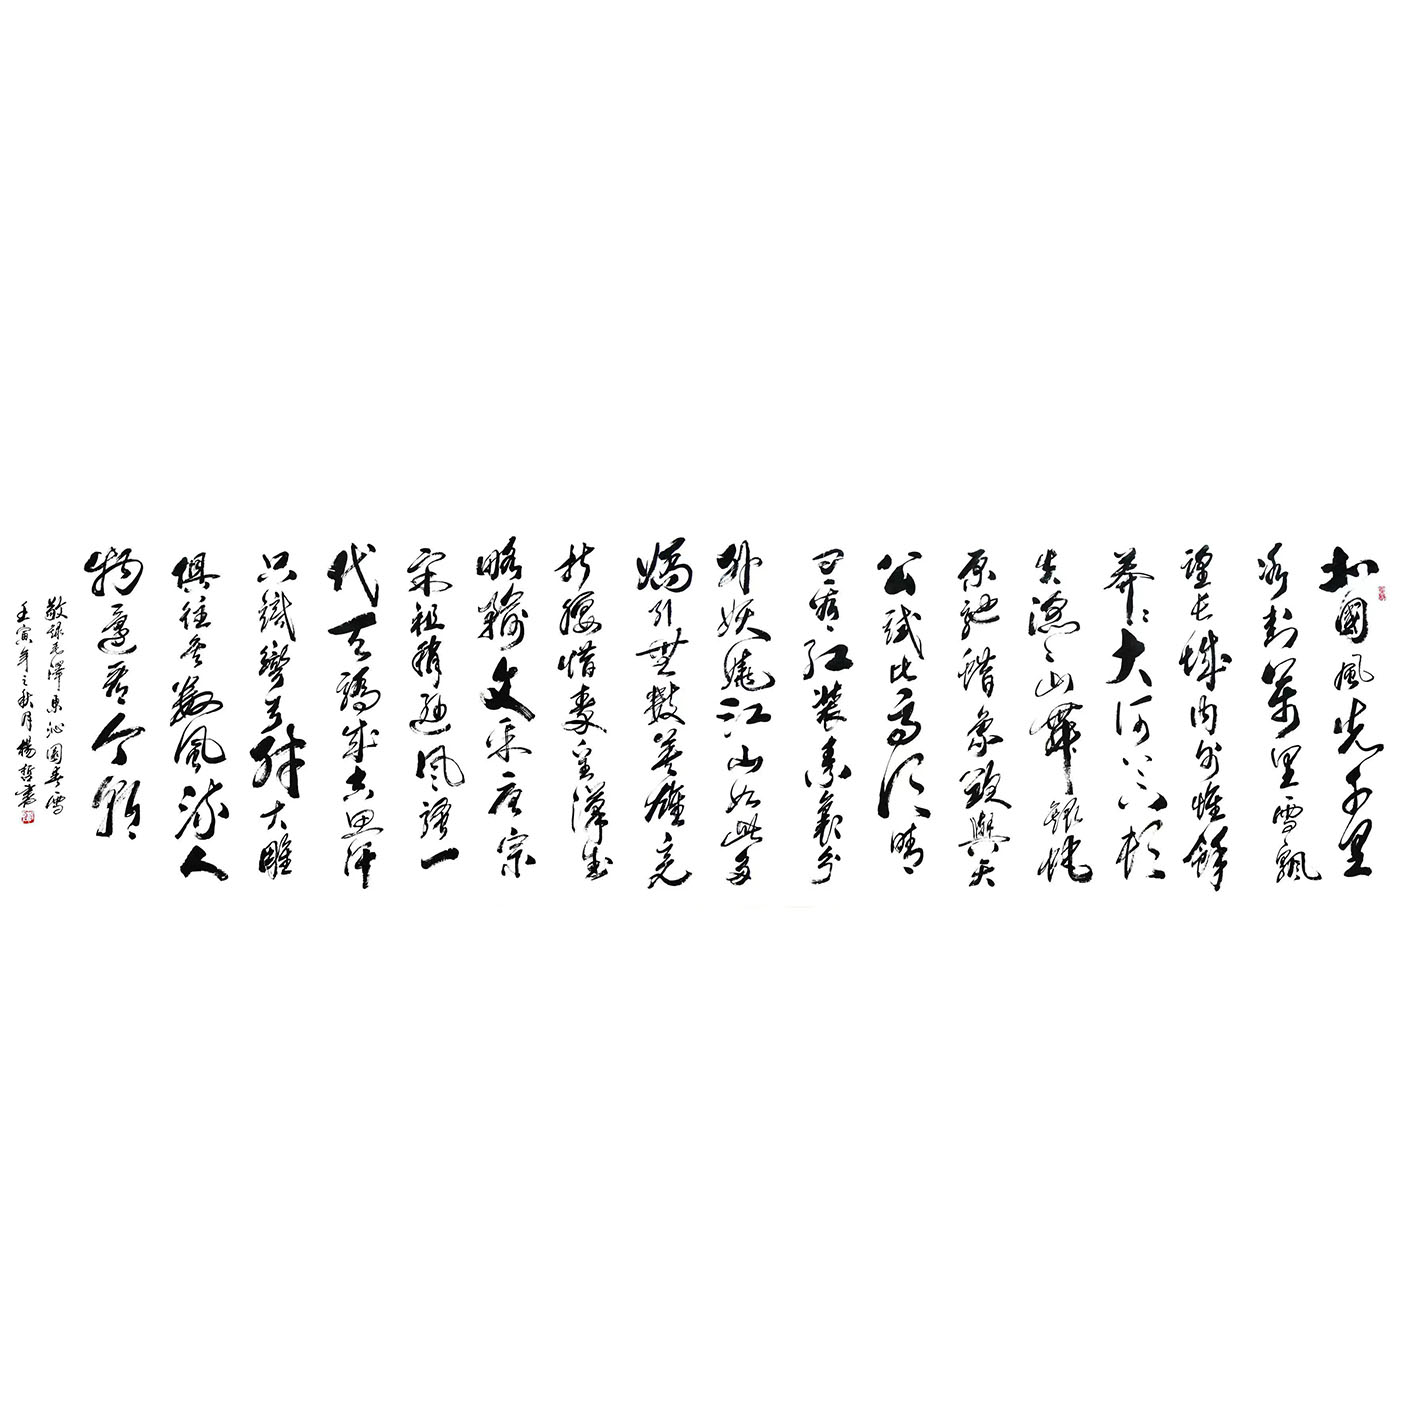 北國風光千里
冰封萬里雪飄
望長城內外惟餘
莽々大河上下頓
失滔々山舞銀蛇
原馳蠟象欲與天
公試比高須晴
日看紅裝素裹分
外妖嬈江山如此多
嬌引無數英雄競
折腰惜秦皇漢武
略輸文采唐宗
宋祖稍遜風騷一
代天驕成吉思汗
只識彎弓射大雕
俱往矣數風流人
物還看今朝
敬錄毛澤東沁園春雪
壬寅年之秋月楊哲書